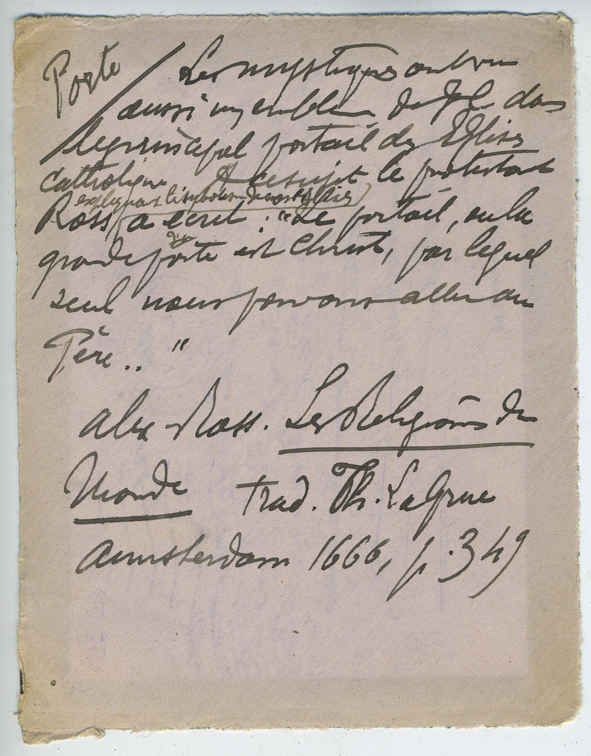 Porte / Les mystiques ont vu
aussi un emblème de J C dans
le principal portail des Églises
catholiques. À ce sujet le protestant
expliquant le symbolisme de son église
Ross a écrit : "Le portail, ou la
grande porte est Christ, par lequel
seul nous pouvons aller au
Père.. "
Alex Ross. Les Religions du
Monde trad. Th. La Grue
Amsterdam 1666, p. 349